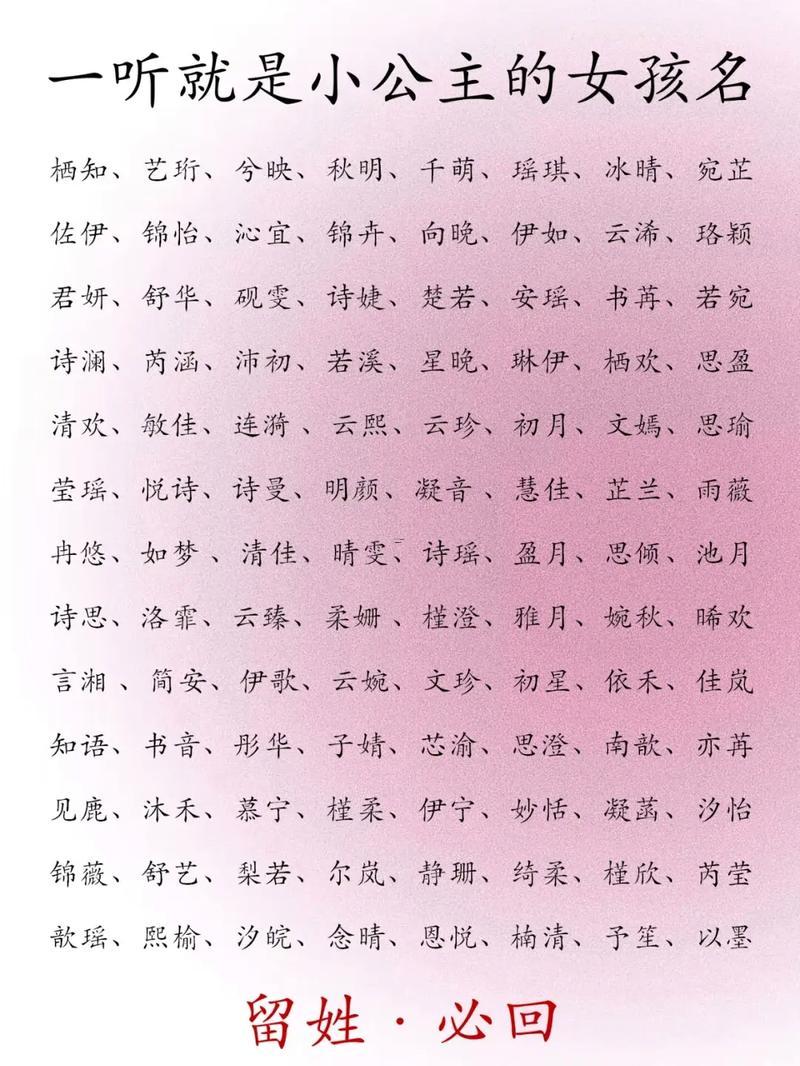 一听就是小公主的女孩名
栖知、艺珩、兮映、秋明、千萌、瑶琪、冰晴、宛芷
佐伊、锦怡、沁宜、锦卉、向晚、伊如、云浠、珞颖
君妍、舒华、砚雯、诗婕、楚若、安瑶、书苒、若宛
诗澜、芮涵、沛初、若溪、星晚、琳伊、栖欢、思盈
清欢、敏佳、连漪、云熙、云珍、初月、文嫣、思瑜
莹瑶、悦诗、诗曼、明颜、凝音、慧佳、芷兰、雨薇
冉悠、如梦、清佳、晴雯、诗瑶、盈月、思倾、池月
诗思、洛霏、云臻、柔姗、槿澄、雅月、婉秋、晞欢
言湘、简安、伊歌、云婉、文珍、初星、依禾、佳岚
知语、书音、彤华、子婧、芯渝、思澄、南歆、亦苒
见鹿、沐禾、慕宁、槿柔、伊宁、妙恬、凝菡、汐怡
锦薇、舒艺、梨若、尔岚、静珊、绮柔、槿欣、芮莹
歆瑶、熙榆、汐皖、念晴、恩悦、楠清、予笙、以墨
留姓·必回